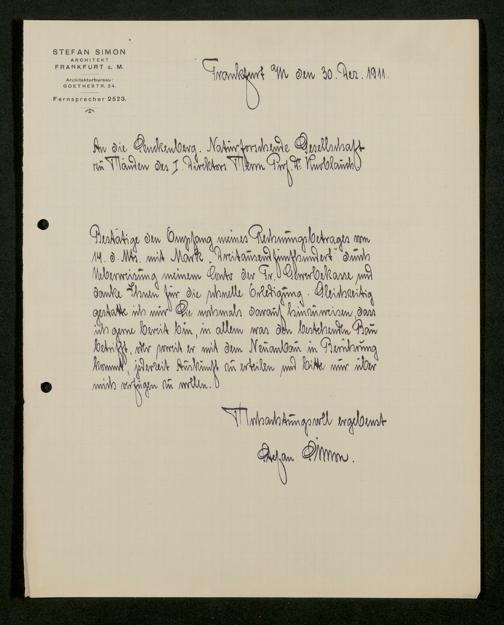 STEFAN SIMON
ARCHITEKT
FRANKFURT a. M.
Architekturbureau:
GOETHESTR. 34.
Fernsprecher 2523.
Frankfurt a/M den 30. Dez. 1911.
An die Senckenberg. Naturforschende Gesellschaft
zu Händen des I. Direktors Herrn Prof. Dr. Knoblauch
Bestätige den Empfang meines Rechnungsbetrages vom
14. d. Mts. mit Mark "Dreitausendfünfhundert" durch
Ueberweisung meinem Conto der Fr. Gewerbekasse und
danke Ihnen für die schnelle Erledigung. Gleichzeitig
gestatte ich mir Sie nochmals darauf hinzuweisen, dass
ich gerne bereit bin, in allem was den bestehenden Bau
betrifft, oder soweit er mit dem Neuanbau in Berührung
kommt, jederzeit Auskunft zu erteilen und bitte nur über
mich verfügen zu wollen.
Hochachtungsvoll ergebenst
Stefan Simon.